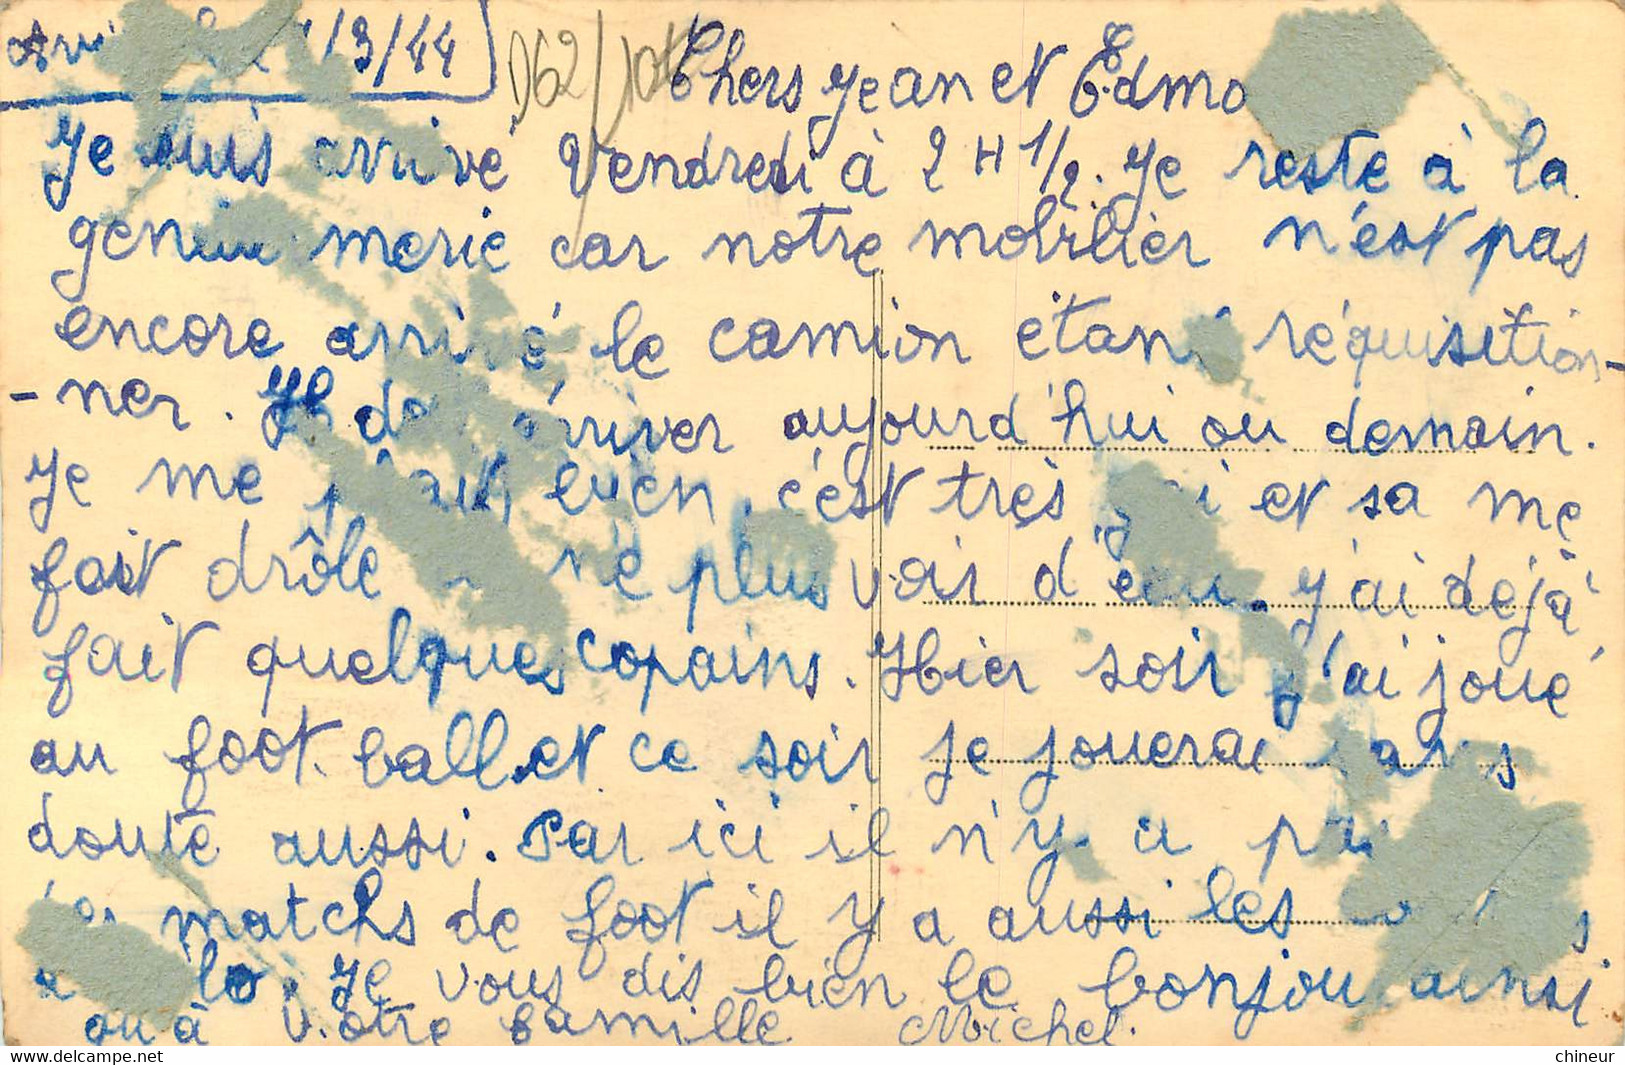 /3/44
D62/104
Chers Jean et Edmo
Je suis arrivé Vendredi à 2 H 1/2. Je reste à la
genda merie car notre mobilier n'est pas
encore arrivé le camion étant réquisition-
-ner. Il doit arriver aujourd'hui ou demain.
Je me plait bien, c'est très joli et sa me
fait drôle ne plus voir d'eau. J'ai déjà
fait quelques copains. Hier soir j'ai joué
au foot-ball et ce soir je jouerai sans
doute aussi. Par ici il n'y a pas
des matchs de foot il y a aussi les
vélo. Je vous dis bien le bonjour ainsi
qu'à votre famille Michel.
chineur